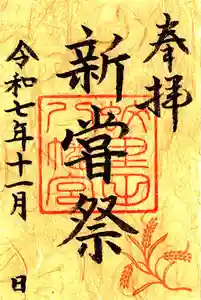 奉拝
新嘗祭
令和七年十一月 日